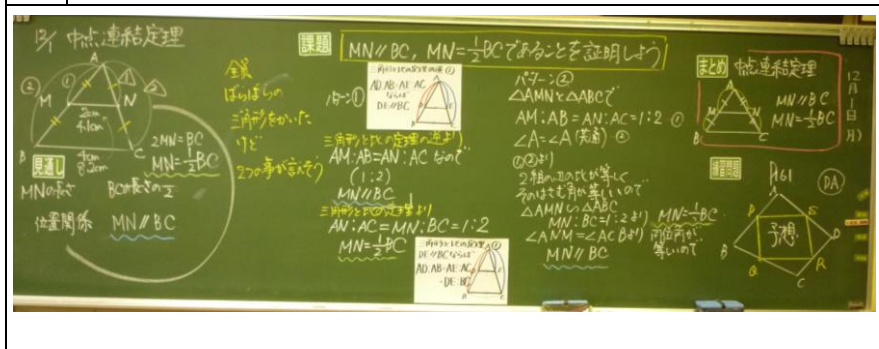 12/1 中点連結定理
② ① A ① ②
M N
2cm
4.1cm
B 4cm C
8.2cm
2MN=BC
MN=1/2BC
見通し
MNの長さ BCの長さの1/2
位置関係 MN//BC
全員
ばらばらの
三角形をかいた
けど
2つの事が言えそう
課題 MN//BC, MN=1/2BCであることを証明しよう
パターン①
三角形と比の定理の逆 ②
AD:AB=AE:AC
ならば
DE//BC
三角形と比の定理の逆より
AM:AB=AN:ACなので
(1:2)
MN//BC
三角形と比の定理より
AN:AC=MN:BC=1:2
MN=1/2BC
三角形と比の定理 ②
DE//BCならば
AD:AB=AE:AC
=DE:BC
パターン②
△AMNと△ABCで
AM:AB=AN:AC=1:2 ①
∠A=∠A(共通) ②
①②より
2組の辺の比が等しく
そのはさむ角が等しいので
△AMN∽△ABC
MN:BC=1:2より MN=1/2BC
∠ANM=∠ACBより 同位角が
等しいので
MN//BC
まとめ 中点連結定理
A
M N
B C
MN//BC
MN=1/2BC
12月1日(月)
練習問題
P161
DA
A
P S
B 予想 D
Q R
C